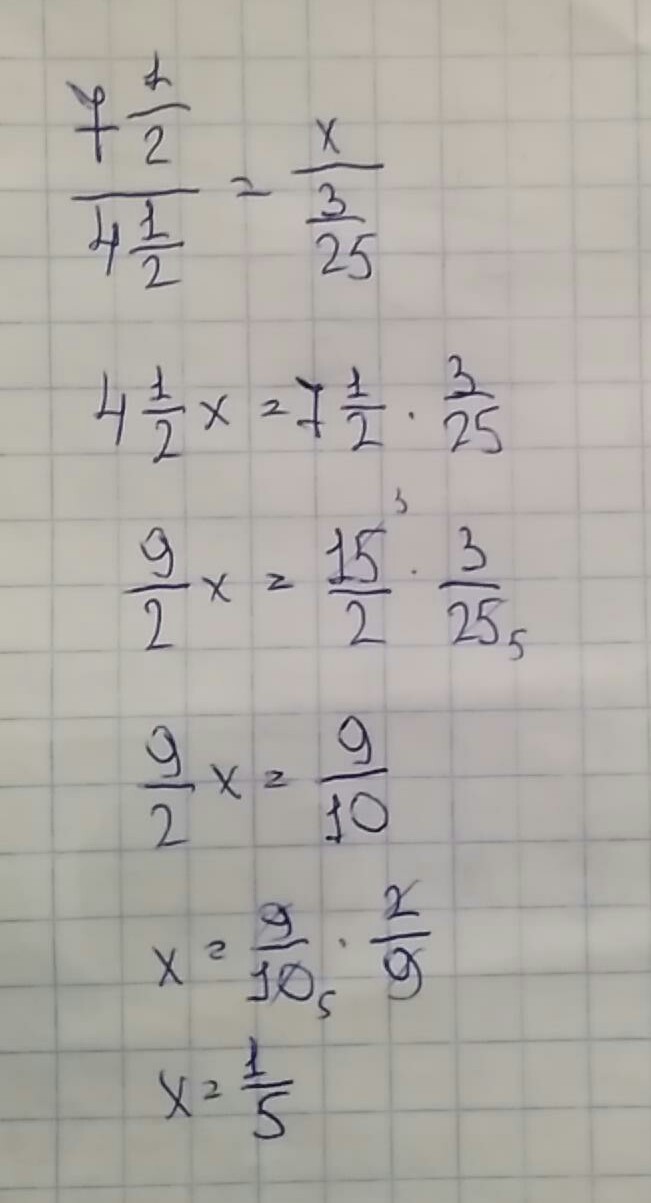 7 1/2 / 4 1/2 = x / 3/25
4 1/2 x = 7 1/2 · 3/25
9/2 x = 15/2 ³ · 3/25 ₅
9/2 x = 9/10
x = 9/10 ₅ · 2/9
x = 1/5